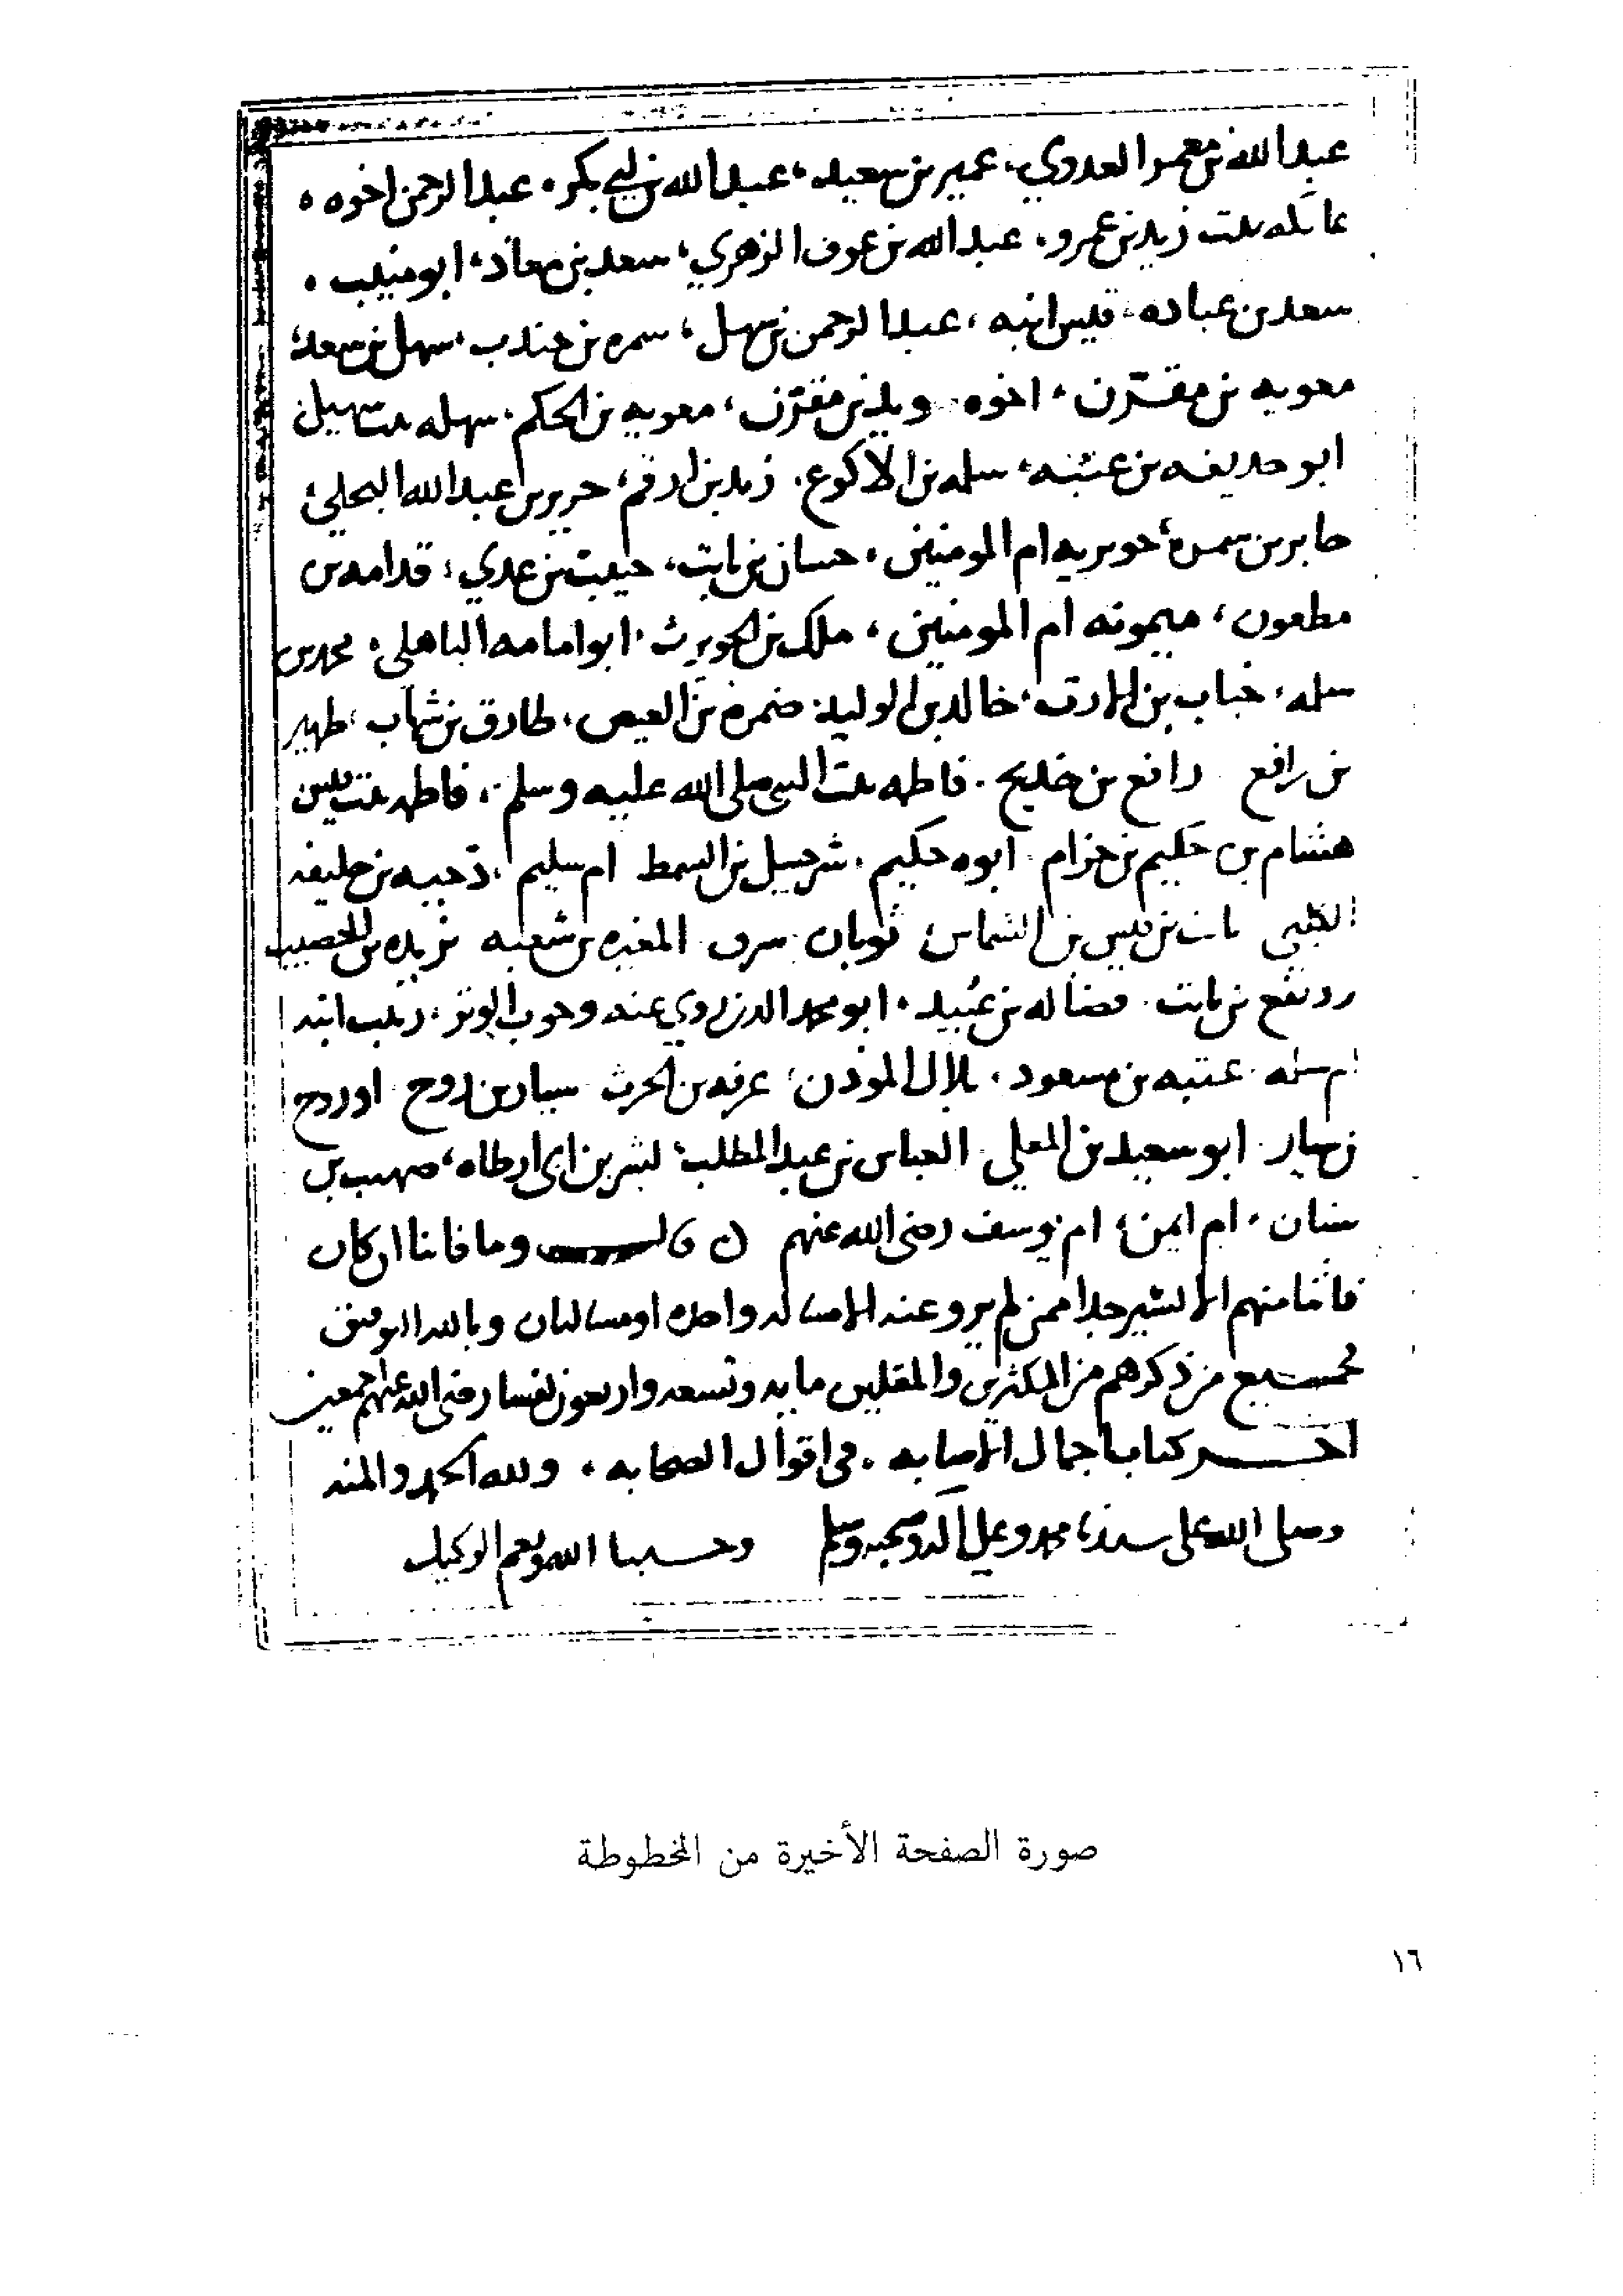 عبد الله بن معمر العدوي، عمير بن سعيد، عبد الله بن ابي بكر. عبد الرحمن اخوه.
عاتكه بنت زيد بن عمرو، عبد الله بن عوف الزهري، سعد بن معاذ، ابو منيب.
سعد بن عباده، قيس ابنه، عبد الرحمن بن سهل، سمره بن جندب، سهل بن سعد،
معويه بن مقرن، اخوه سويد بن مقرن، معويه بن الحكم. سهله بنت سهيل
ابو حذيفه بن عتبه، سلمه بن الاكوع. زيد بن ارقم، جرير بن عبد الله البجلي
جابر بن سمره، جويريه ام المومنين، حسان بن ثابت، حبيب بن عدي، قدامه بن
مظعون، ميمونه ام المومنين، ملك بن الحويرث، ابو امامه الباهلي، محمد بن
سلمه، خباب بن الارت، خالد بن الوليد، ضمره بن العيص، طارق بن شهاب، ظهير
بن رافع رافع بن خديج. فاطمه بنت النبي صلى الله عليه وسلم، فاطمه بنت قيس
هشام بن حكيم بن حزام. ابوه حكيم، شرحبيل بن السمط ام سليم، دحيه بن خليفه
الكلبي ثابت بن قيس بن الشماس ثوبان سرق المغيره بن شعبه بريده بن الحصيب
رويفع بن ثابت. فضاله بن عبيد. ابو محمد الذي روي عنه وجوب الوتر، زينب ابنه
ام سلمه. عتبه بن مسعود. بلال الموذن، عرفه بن الحرث سيار بن روح اوروح
بن سيار. ابو سعيد بن المعلي. العباس بن عبد المطلب، بشر بن ابي ارطاه، صهيب بن
سنان، ام ايمن، ام يوسف رضي الله عنهم وما فاتنا ان كان
فاتنا منهم الا اليسير جدا ممن لم يرو عنه الا مساله واحده او مسالتان وبالله التوفيق
فجميع من ذكرهم من المكثرين والمقلين مايه وتسعه واربعون نفسا رضي الله عنهم اجمعين
اخر كتاب اجمال الاصابه. في اقوال الصحابه. ولله الحمد والمنه
وصلى الله على سيدنا محمد وعلى اله وصحبه وسلم وحسبنا الله ونعم الوكيل
صورة الصفحة الأخيرة من المخطوطة
١٦